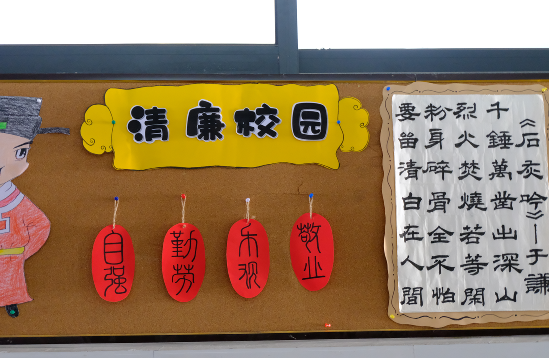 清廉校园
自强
勤劳
乐观
敬业
《石灰吟》—于謙
千錘萬凿出深山
烈火焚燒若等閑
粉身碎骨全不怕
要留清白在人間